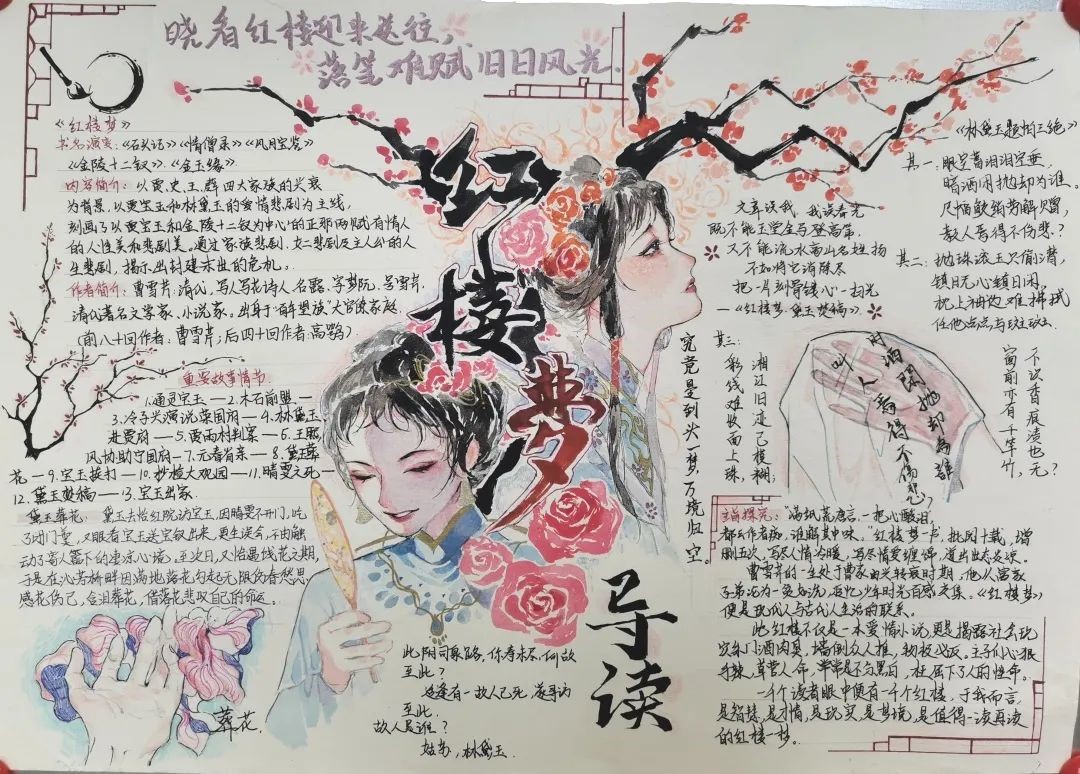 晓看红楼迎来送往，
落笔难赋旧日风光.
红楼梦
导读
《红楼梦》
书名演变：《石头记》《情僧录》《风月宝鉴》
《金陵十二钗》、《金玉缘》
内容简介：以贾、史、王、薛四大家族的兴衰
为背景，以贾宝玉和林黛玉的爱情悲剧为主线，
刻画了以贾宝玉和金陵十二钗为中心的正邪两赋有情人
的人性美和悲剧美。通过家族悲剧、女儿悲剧及主人公的人
生悲剧，揭示出封建末世的危机。
作者简介：曹雪芹，清代，写人写名诗人，名霑，字梦阮，号雪芹，
清代著名文学家、小说家。出身"百年望族"大官僚家庭
(前八十回作者：曹雪芹；后四十回作者：高鹗)
重要故事情节
1.通灵宝玉—2.木石前盟—
3.冷子兴演说荣国府—4.林黛玉
进贾府—5.贾雨村判案—6.王熙
凤协助宁国府—7.元春省亲—8.黛玉葬
花—9.宝玉挨打—10.抄检大观园—11.晴雯之死—
12.黛玉焚稿—13.宝玉出家.
黛玉葬花：黛玉去怡红院访宝玉，因晴雯不开门，吃
了闭门羹，又眼看宝玉送宝钗出来，更生误会，不由触
动了寄人篱下的凄凉心境。至次日，又恰遇饯花之期，
于是在沁芳桥畔因满地落花勾起无限伤春愁思，
感花伤己，含泪葬花，借落花悲叹自己的命运。
葬花.
文章误我，我误青春
既不能玉堂金马登高第
又不能流水高山名姓扬
不如将它消除尽
把一片刻骨镂心一扫光
—《红楼梦·黛玉焚稿》—
究竟是到头一梦，万境归空。
此阴司冥路，你寿未尽，何故
至此？
适逢有一故人已死，遂寻访
至此.
故人是谁？
姑苏，林黛玉.
《林黛玉题帕三绝》
其一：眼空蓄泪泪空垂，
暗洒闲抛却为谁。
尺幅鲛绡劳解赠，
教人焉得不伤悲？
其二：抛珠滚玉只偷潸，
镇日无心镇日闲.
枕上袖边难拂拭
任他点点与斑斑.
其三：
彩线难收面上珠，
湘江旧迹已模糊；
窗前亦有千竿竹，
不识香痕渍也无？
暗洒闲抛却为谁
叫人焉得不伤悲
主旨探究：满纸荒唐言，一把心酸泪.
都云作者痴，谁解其中味，红楼梦一书，批阅十载，增
删五次，写尽人情冷暖，写尽情爱缠绵，道出世态炎凉.
曹雪芹的一生处于曹家由兴转衰时期，他从富家
子弟沦为一贫如洗，追忆少年时光百感交集。《红楼梦》
便是现代人与古代人生活的联系。
此红楼不仅是一本爱情小说，更是揭露社会现
实，朱门酒肉臭，墙倒众人推，物极必反。主子们心狠
手辣，草菅人命，单单是不分黑白，枉留下了人的性命。
一个读者眼中便有一个红楼，于我而言，
是智慧，是才情，是现实，是梦境，是值得一读再读
的红楼一梦。